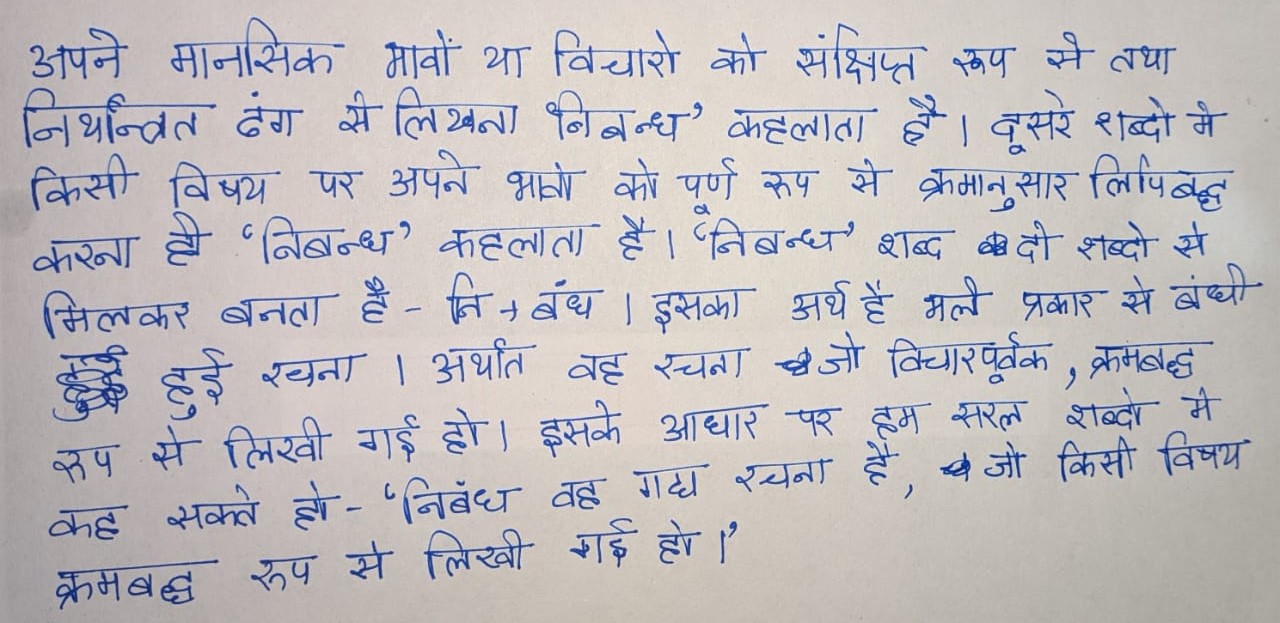 अपने मानसिक भावों या विचारो को संक्षिप्त रूप से तथा
निर्यान्त्रित ढंग से लिखना 'निबन्ध' कहलाता है । दूसरे शब्दो मे
किसी विषय पर अपने भावो को पूर्ण रूप से क्रमानुसार लिपिबद्ध
करना ही 'निबन्ध' कहलाता है । 'निबन्ध' शब्द दो शब्दो से
मिलकर बनता है - नि + बंध । इसका अर्थ है भले प्रकार से बंधी
हुई रचना । अर्थात वह रचना जो विचारपूर्वक , क्रमबद्ध
रूप से लिखी गई हो । इसके आधार पर हम सरल शब्दो मे
कह सकते हो - 'निबंध वह गद्य रचना है , जो किसी विषय
क्रमबद्ध रूप से लिखी गई हो ।'